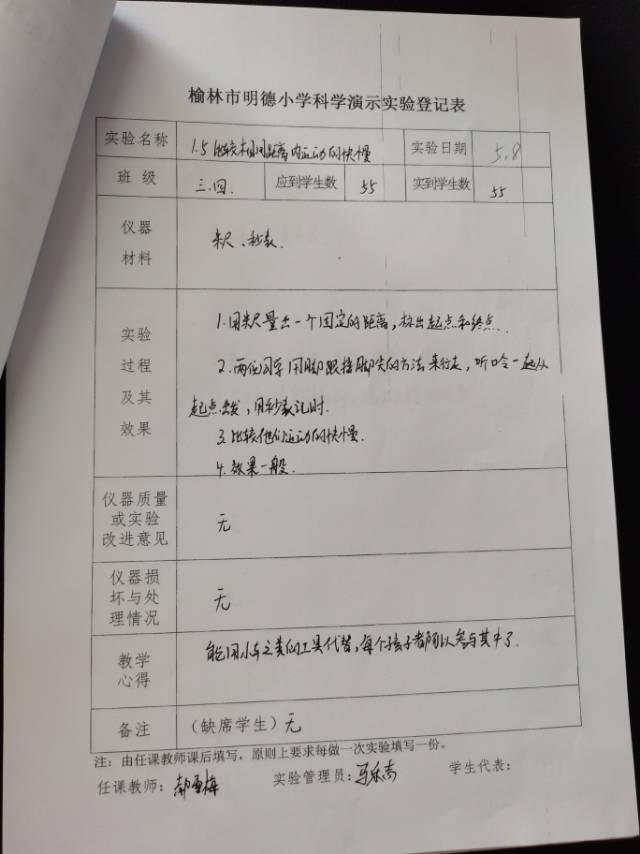 榆林市明德小学科学演示实验登记表
实验名称 1.5 比较相同距离内运动的快慢 实验日期 5.8
班 级 三.四 应到学生数 55 实到学生数 55
仪器
材料
米尺、秒表.
实验
过程
及其
效果
1.用米尺量出一个固定的距离,标出起点和终点.
2.两位同学用脚跟接脚尖的方法来行走,听口令一起从
起点出发,用秒表记时.
3.比较他们运动的快慢.
4.效果一般.
仪器质量
或实验
改进意见
无
仪器损
坏与处
理情况
无
教学
心得
能用小车之类的工具代替,每个孩子都可以参与其中了.
备注 (缺席学生)无
注:由任课教师课后填写,原则上要求每做一次实验填写一份。
任课教师: 实验管理员: 学生代表: